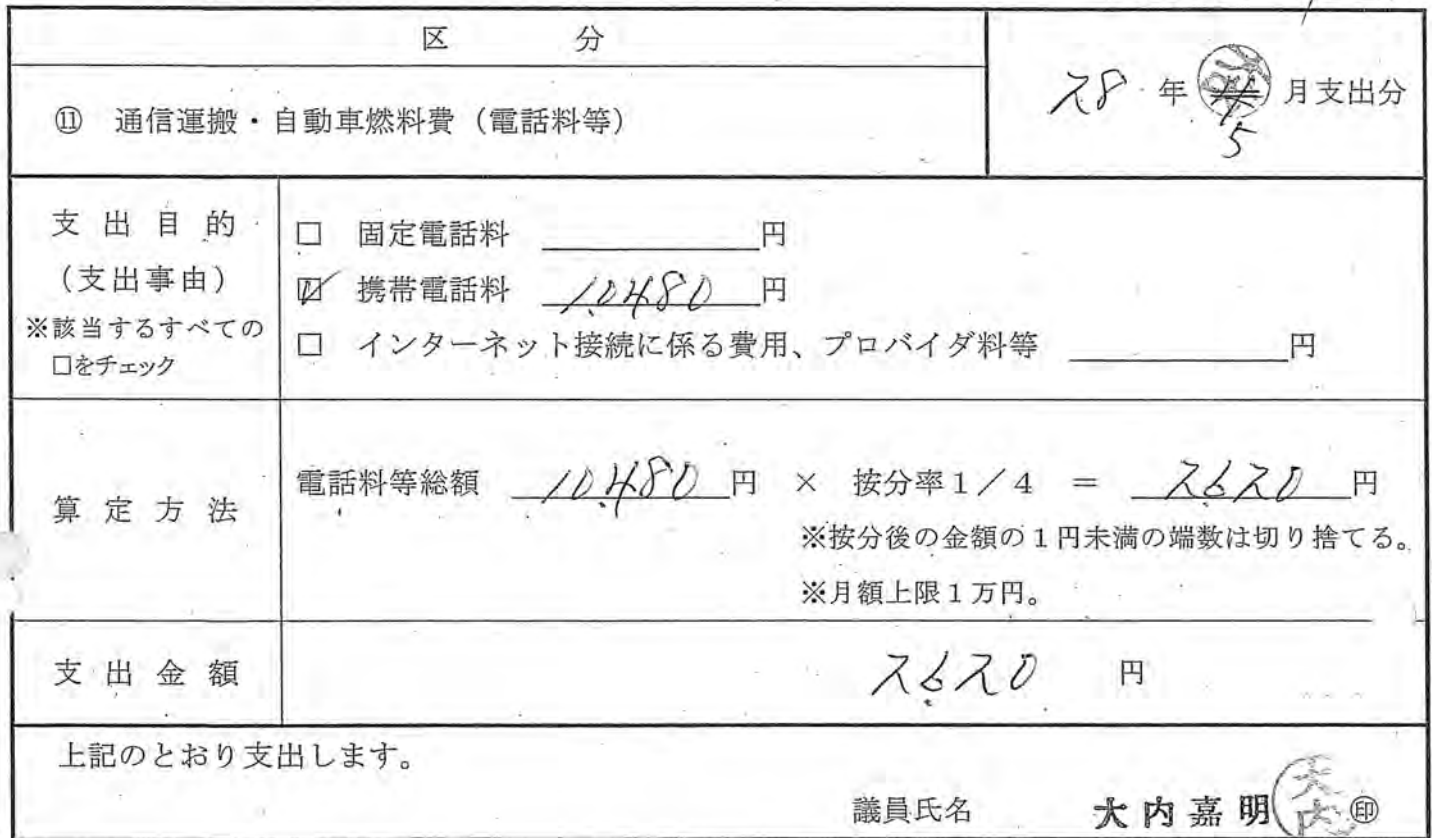 区 分
⑪ 通信運搬・自動車燃料費（電話料等）
28 年 5 月支出分
支出目的
（支出事由）
※該当するすべての
□をチェック
□ 固定電話料 円
☑ 携帯電話料 10,480 円
□ インターネット接続に係る費用、プロバイダ料等 円
算定方法
電話料等総額 10,480 円 × 按分率１／４ ＝ 2,620 円
※按分後の金額の１円未満の端数は切り捨てる。
※月額上限１万円。
支出金額
2,620 円
上記のとおり支出します。
議員氏名 大内嘉明 大内 ㊞